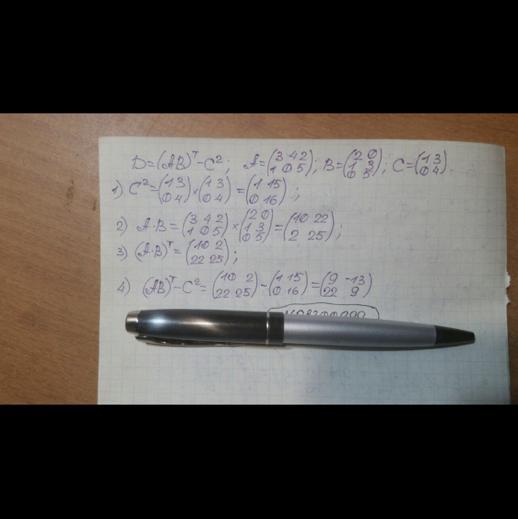 D=(AB)ᵀ-C²; A=(3 4 2 / 1 0 5); B=(2 0 / 1 3 / 0 5); C=(1 3 / 0 4).
1) C²=(1 3 / 0 4)×(1 3 / 0 4)=(1 15 / 0 16);
2) A·B=(3 4 2 / 1 0 5)×(2 0 / 1 3 / 0 5)=(10 22 / 2 25);
3) (A·B)ᵀ=(10 2 / 22 25);
4) (AB)ᵀ-C²=(10 2 / 22 25)-(1 15 / 0 16)=(9 -13 / 22 9)